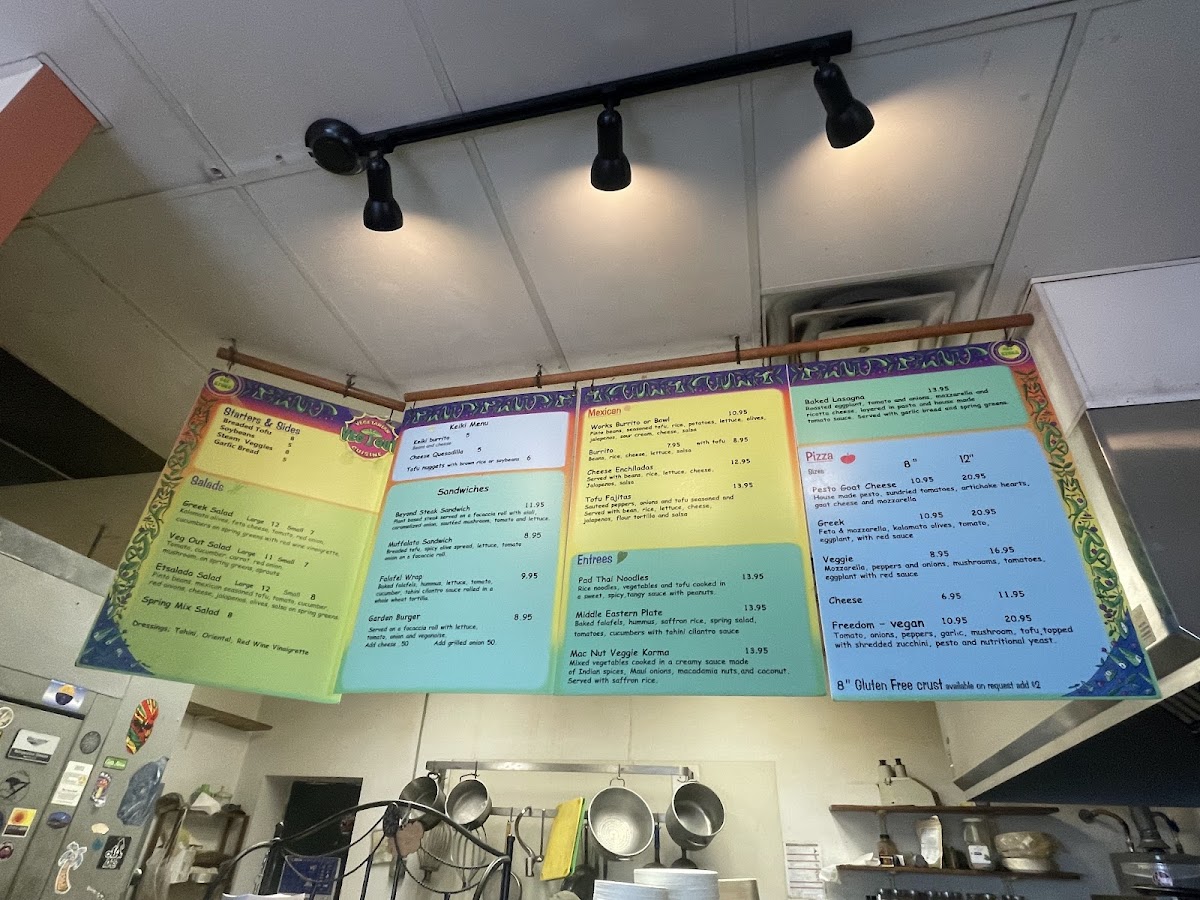 Starters & Sides
Breaded Tofu 8
Soybeans 5
Steam Veggies 6
Garlic Bread 5
VEGETARIAN
CUISINE
Salads
Greek Salad Large 12 Small 7
Kalamata olives, feta cheese, tomato, red onion,
cucumbers on spring greens with red wine vinaigrette.
Veg Out Salad Large 11 Small 7
Tomato, cucumber, carrot, red onion,
mushroom, on spring greens, sprouts.
Etsalada Salad Large 12 Small 8
Pinto beans, mexican seasoned tofu, tomato, cucumber,
red onions, cheese, jalapenos, olives, salsa on spring greens
Spring Mix Salad 8
Dressings: Tahini, Oriental, Red Wine Vinaigrette
Keiki Menu
Keiki burrito 5
Beans and cheese
Cheese Quesadilla 5
Tofu nuggets with brown rice or soybeans 6
Sandwiches
Beyond Steak Sandwich 11.95
Plant based steak served on a focaccia roll with aioli,
caramelized onion, sautéed mushroom, tomato and lettuce.
Muffalata Sandwich 8.95
Breaded tofu, spicy olive spread, lettuce, tomato
onion on a focaccia roll.
Falafel Wrap 9.95
Baked falafels, hummus, lettuce, tomato,
cucumber, tahini cilantro sauce rolled in a
whole wheat tortilla.
Garden Burger 8.95
Served on a focaccia roll with lettuce,
tomato, onion and veganaise.
Add cheese .50 Add grilled onion 50.
Mexican
Works Burrito or Bowl 10.95
Pinto beans, seasoned tofu, rice, potatoes, lettuce, olives,
jalapenos, sour cream, cheese, salsa
Burrito 7.95 with tofu 8.95
Beans, rice, cheese, lettuce, salsa
Cheese Enchiladas 12.95
Served with beans, rice, lettuce, cheese,
Jalapenos, salsa
Tofu Fajitas 13.95
Sauteed peppers, onions and tofu seasoned and
Served with bean, rice, lettuce, cheese,
jalapenos, flour tortilla and salsa
Entrees
Pad Thai Noodles 13.95
Rice noodles, vegetables and tofu cooked in
a sweet, spicy,tangy sauce with peanuts.
Middle Eastern Plate 13.95
Baked falafels, hummus, saffron rice, spring salad,
tomatoes, cucumbers with tahini cilantro sauce
Mac Nut Veggie Korma 13.95
Mixed vegetables cooked in a creamy sauce made
of Indian spices, Maui onions, macadamia nuts,and coconut.
Served with saffron rice.
Baked Lasagna 13.95
Roasted eggplant, tomato and onions, mozzarella and
ricotta cheese, layered in pasta and house made
tomato sauce Served with garlic bread and spring greens.
Pizza
Sizes 8" 12"
Pesto Goat Cheese 10.95 20.95
House made pesto, sundried tomatoes, artichoke hearts,
goat cheese and mozzarella
Greek 10.95 20.95
Feta & mozzarella, kalamata olives, tomato,
eggplant, with red sauce
Veggie 8.95 16.95
Mozzarella, peppers and onions, mushrooms, tomatoes,
eggplant with red sauce
Cheese 6.95 11.95
Freedom - vegan 10.95 20.95
Tomato, onions, peppers, garlic, mushroom, tofu,topped
with shredded zucchini, pesto and nutritional yeast.
8" Gluten Free crust available on request add $2